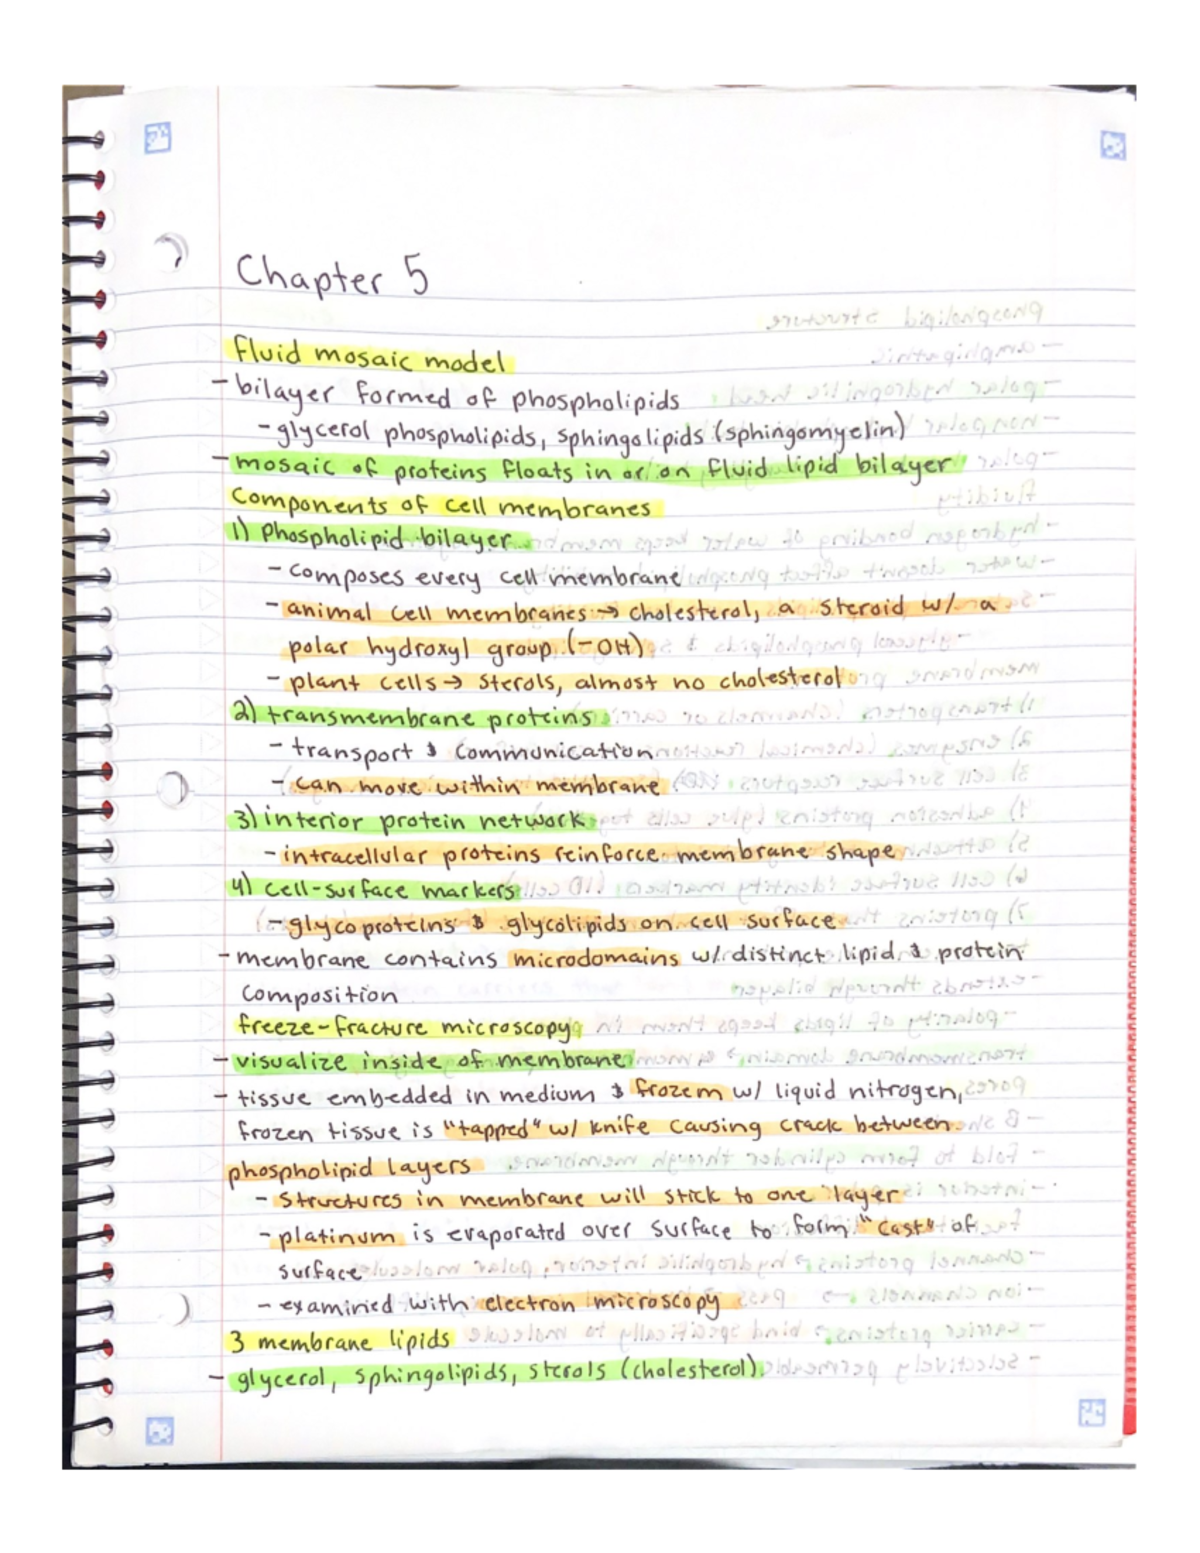 Chapter 5
fluid mosaic model
- bilayer formed of phospholipids
- glycerol phospholipids, sphingolipids (sphingomyelin)
- mosaic of proteins floats in or on fluid lipid bilayer
Components of cell membranes
1) Phospholipid bilayer
- composes every cell membrane
- animal cell membranes → cholesterol, a steroid w/ a
polar hydroxyl group (-OH)
- plant cells → sterols, almost no cholesterol
2) transmembrane proteins
- transport & communication
- can move within membrane
3) interior protein network
- intracellular proteins reinforce membrane shape
4) cell-surface markers
- glycoproteins & glycolipids on cell surface
- membrane contains microdomains w/ distinct lipid & protein
composition
freeze-fracture microscopy
- visualize inside of membrane
- tissue embedded in medium & frozem w/ liquid nitrogen,
frozen tissue is "tapped" w/ knife causing crack between
phospholipid layers
- structures in membrane will stick to one layer
- platinum is evaporated over surface to form "cast" of
surface
- examined with electron microscopy
3 membrane lipids
- glycerol, sphingolipids, sterols (cholesterol)